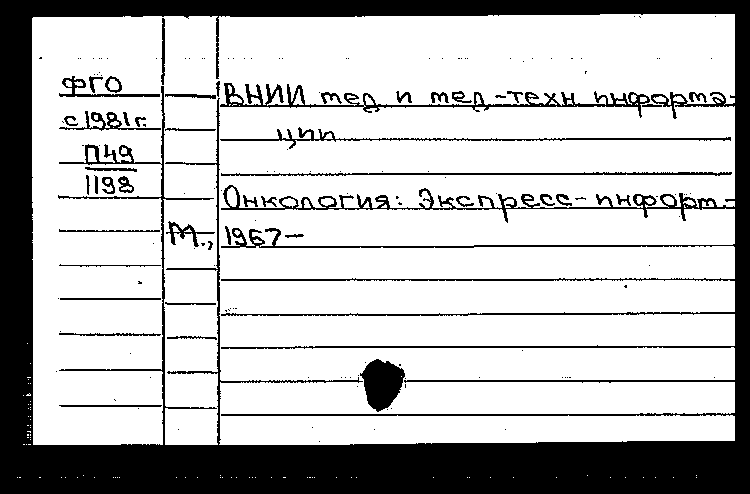 ФГО
с 1981 г.
П49
1193
ВНИИ мед и мед.-техн информа-
ции
Онкология: Экспресс-информ.-
М., 1967—